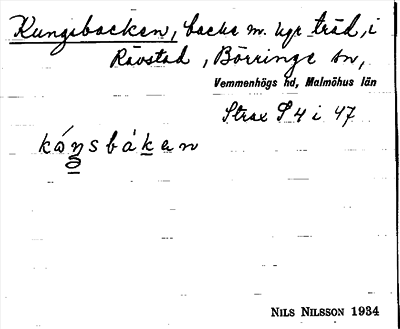 Kungsbacken, backe m. ngr träd, i
Rävstad, Börringe sn,
Vemmenhögs hd, Malmöhus län
Strax S 4 i 47
kåŋsbáken
NILS NILSSON 1934